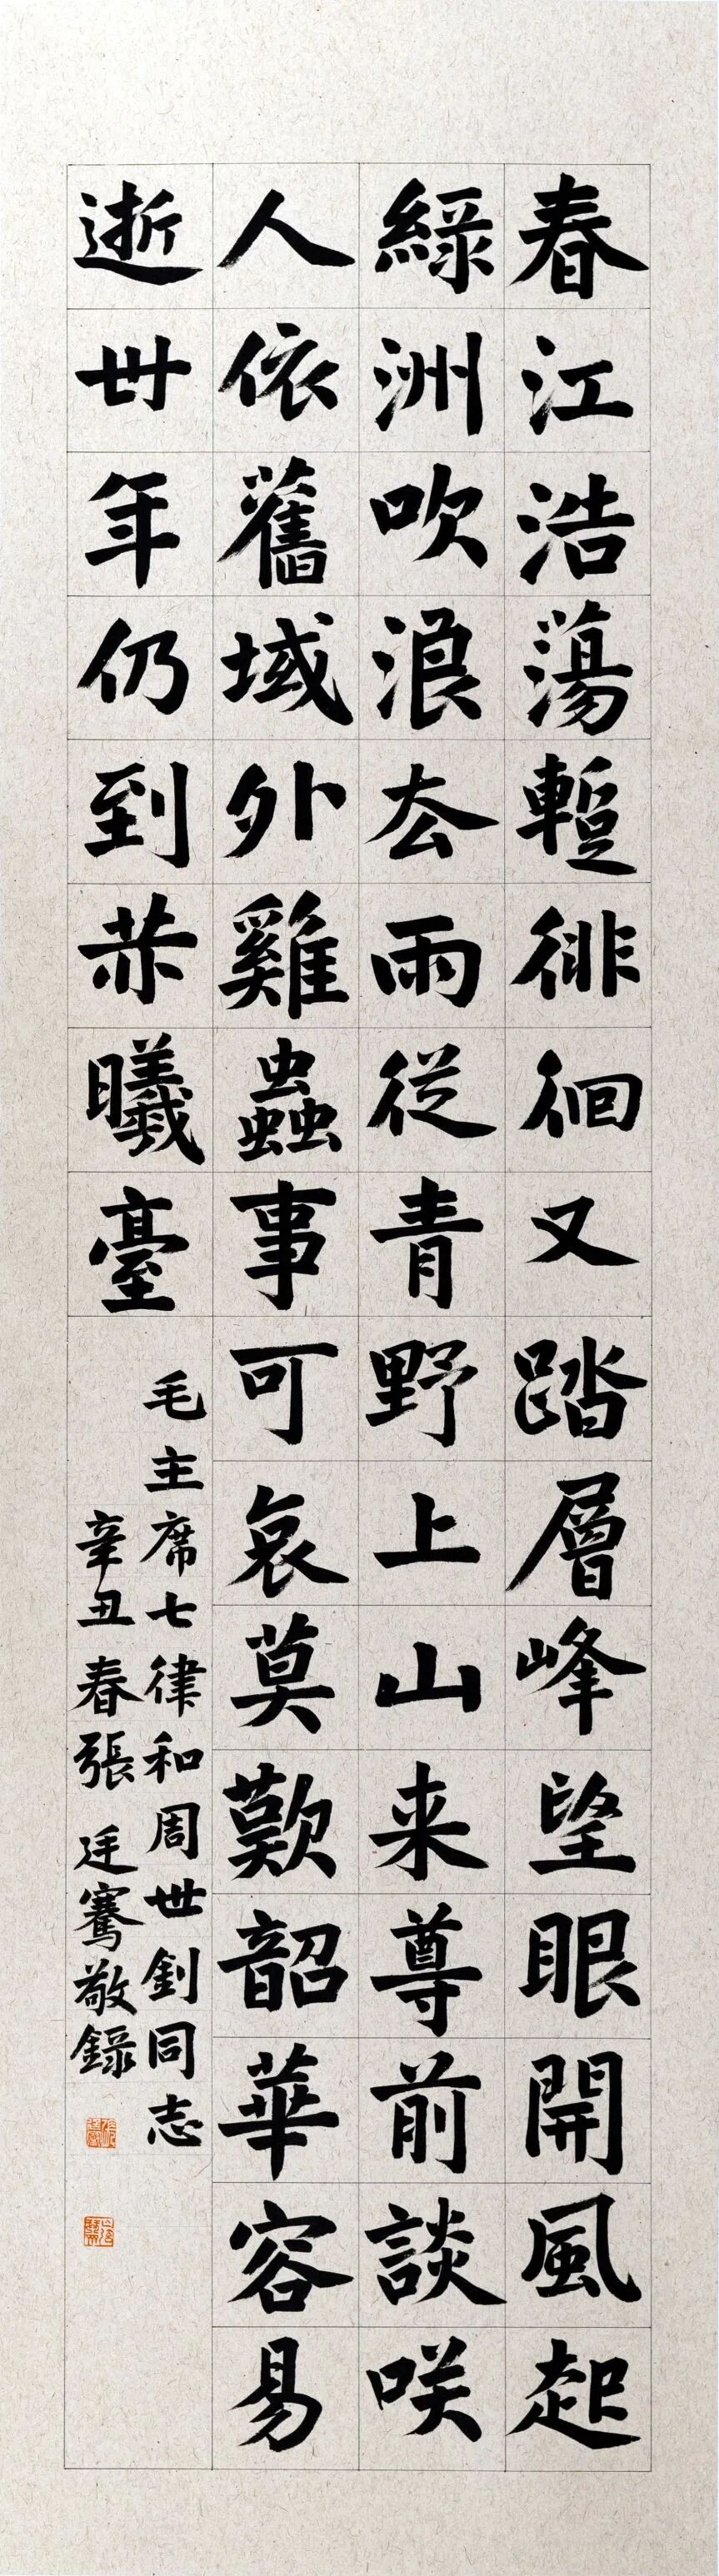 春江浩蕩暫徘徊又踏層峰望眼開風起
緑洲吹浪去雨從青野上山来尊前談咲
人依舊域外雞蟲事可哀莫歎韶華容易
逝卅年仍到赫曦臺
毛主席七律和周世釗同志
辛丑春張廷騫敬録